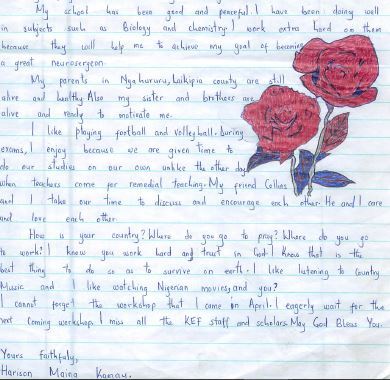 My school has been good and peaceful. I have been doing well
in subjects such as Biology and chemistry. I work extra hard on them
because they will help me to achieve my goal of becoming
a great neurosergeon.
My parents in Nyahururu, Laikipia county are still
alive and healthy. Also my sister and brothers are
alive and ready to motivate me.
I like playing football and volleyball. During
exams, I enjoy because we are given time to
do our studies on our own unlike the other days
when teachers come for remedial teaching. My friend Collins
and I take our time to discuss and encourage each other. He and I care
and love each other.
How is your country? Where do you go to pray? Where do you go
to work? I know you work hard and trust in God. I know that is the
best thing to do so as to survive on earth. I like listening to Country
Music and I like watching Nigerian movies, and you?
I cannot forget the workshop that I came on April. I eagerly wait for the
next coming workshop. I miss all the KEF staff and scholars. May God Bless You.
Yours faithfully,
Harison Maina Kamau.